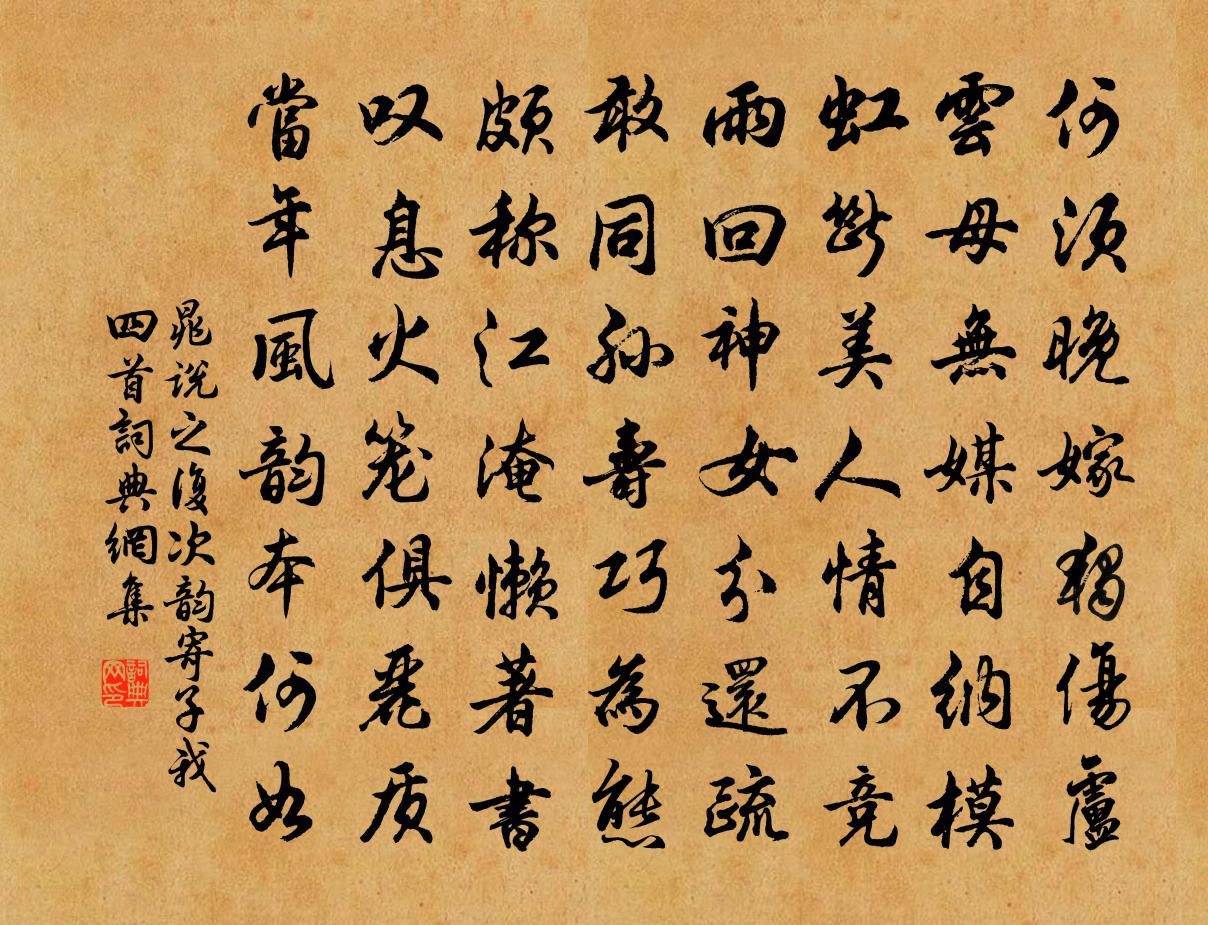 何須晚嫁獨傷盧
雲母無媒自納模
虹斷美人情不竞
雨回神女分還疏
敢同孙壽巧為態
頗称江淹懒著書
叹息火笼俱麗质
當年風韵本何如
晁説之復次韵寄子我
四首詞典網集
詞典网印